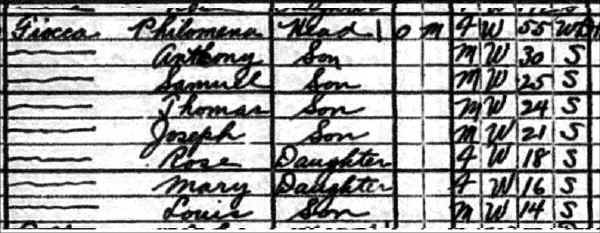 Fiocca Philomena Head 1 O M F W 55 Wd
Anthony Son M W 30 S
Samuel Son M W 25 S
Thomas Son M W 24 S
Joseph Son M W 21 S
Rose Daughter F W 18 S
Mary Daughter F W 16 S
Louis Son M W 14 S